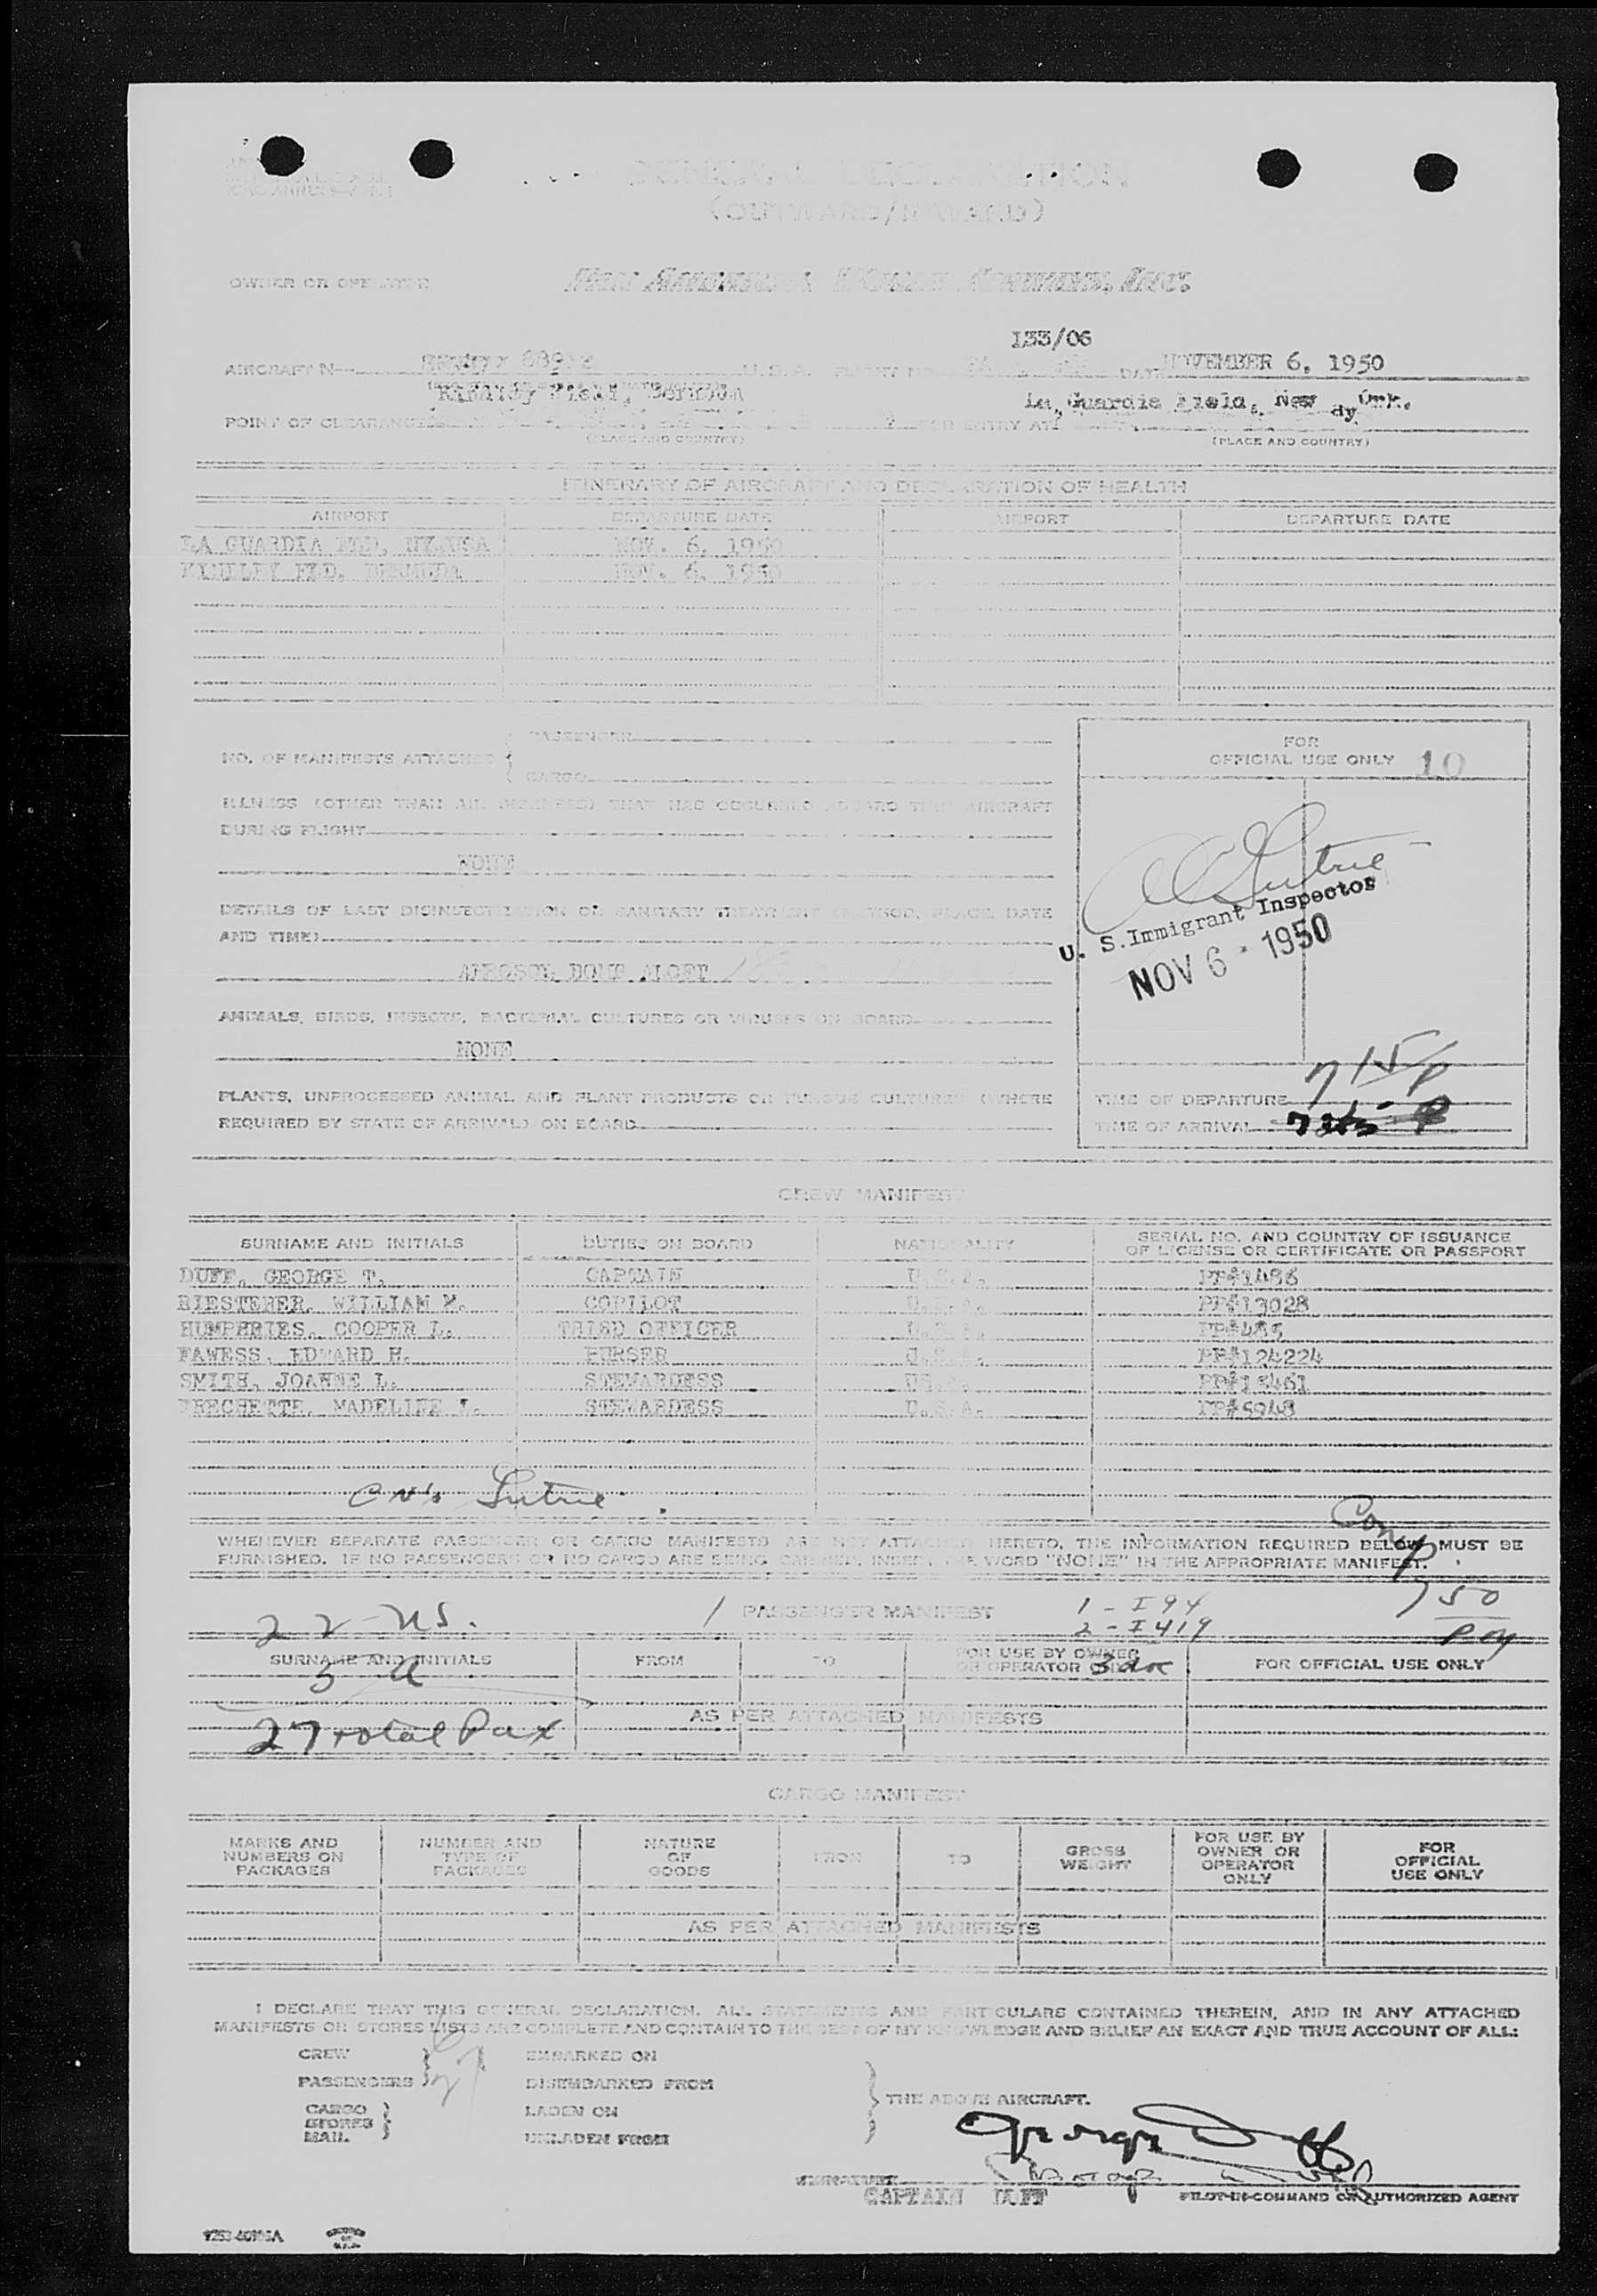 GENERAL DECLARATION
(OUTWARD/INWARD)
OWNER OR OPERATOR Pan American World Airways, Inc.
133/06
AIRCRAFT N- U.S.A. FLIGHT NO. DATE NOVEMBER 6, 1950
Kindley Field, Bermuda La Guardia Field, New York.
POINT OF CLEARANCE FOR ENTRY AT
(PLACE AND COUNTRY) (PLACE AND COUNTRY)
ITINERARY OF AIRCRAFT AND DECLARATION OF HEALTH
AIRPORT DEPARTURE DATE AIRPORT DEPARTURE DATE
LA GUARDIA FLD, NY.USA NOV. 6, 1950
KINDLEY FLD. BERMUDA NOV. 6, 1950
NO. OF MANIFESTS ATTACHED { PASSENGER
{ CARGO
FOR
OFFICIAL USE ONLY 10
ILLNESS (OTHER THAN AIR SICKNESS) THAT HAS OCCURRED ABOARD THE AIRCRAFT
DURING FLIGHT
NONE
DETAILS OF LAST DISINSECTIZATION OR SANITARY TREATMENT (METHOD, PLACE, DATE
AND TIME)
AEROSOL BOMB ALOFT
U. S. Immigrant Inspector
NOV 6 - 1950
ANIMALS, BIRDS, INSECTS, BACTERIAL CULTURES OR VIRUSES ON BOARD
NONE
PLANTS, UNPROCESSED ANIMAL AND PLANT PRODUCTS OR FUNGUS CULTURES (WHERE
REQUIRED BY STATE OF ARRIVAL) ON BOARD
TIME OF DEPARTURE 715/P
TIME OF ARRIVAL
CREW MANIFEST
SURNAME AND INITIALS DUTIES ON BOARD NATIONALITY SERIAL NO. AND COUNTRY OF ISSUANCE
OF LICENSE OR CERTIFICATE OR PASSPORT
DUFF, GEORGE T. CAPTAIN U.S.A. PP#1486
RIESTERER, WILLIAM COPILOT U.S.A. PP#13028
HUMPHRIES, COOPER L. THIRD OFFICER U.S.A.
FAWESS, EDWARD H. PURSER U.S.A. PP#124224
SMITH, JOANNE L. STEWARDESS PP#13461
FRECHETTE, MADELINE STEWARDESS U.S.A. PP#5948
Comp
WHENEVER SEPARATE PASSENGER OR CARGO MANIFESTS ARE NOT ATTACHED HERETO, THE INFORMATION REQUIRED BELOW MUST BE
FURNISHED. IF NO PASSENGERS OR NO CARGO ARE BEING CARRIED, INSERT THE WORD "NONE" IN THE APPROPRIATE MANIFEST.
22 US. / PASSENGER MANIFEST 1 - I 94 750
2 - I 419
SURNAME AND INITIALS FROM TO FOR USE BY OWNER
OR OPERATOR ONLY FOR OFFICIAL USE ONLY
5 A
AS PER ATTACHED MANIFESTS
27 total Pax
CARGO MANIFEST
MARKS AND NUMBERS ON PACKAGES NUMBER AND TYPE OF PACKAGES NATURE OF GOODS FROM TO GROSS WEIGHT FOR USE BY OWNER OR OPERATOR ONLY FOR OFFICIAL USE ONLY
AS PER ATTACHED MANIFESTS
I DECLARE THAT THIS GENERAL DECLARATION, ALL STATEMENTS AND PARTICULARS CONTAINED THEREIN, AND IN ANY ATTACHED
MANIFESTS OR STORES LISTS ARE COMPLETE AND CONTAIN TO THE BEST OF MY KNOWLEDGE AND BELIEF AN EXACT AND TRUE ACCOUNT OF ALL:
CREW EMBARKED ON
PASSENGERS DISEMBARKED FROM
THE ABOVE AIRCRAFT.
CARGO LADEN ON
STORES
MAIL UNLADEN FROM
George Duff
SIGNATURE
CAPTAIN DUFF PILOT-IN-COMMAND OR AUTHORIZED AGENT